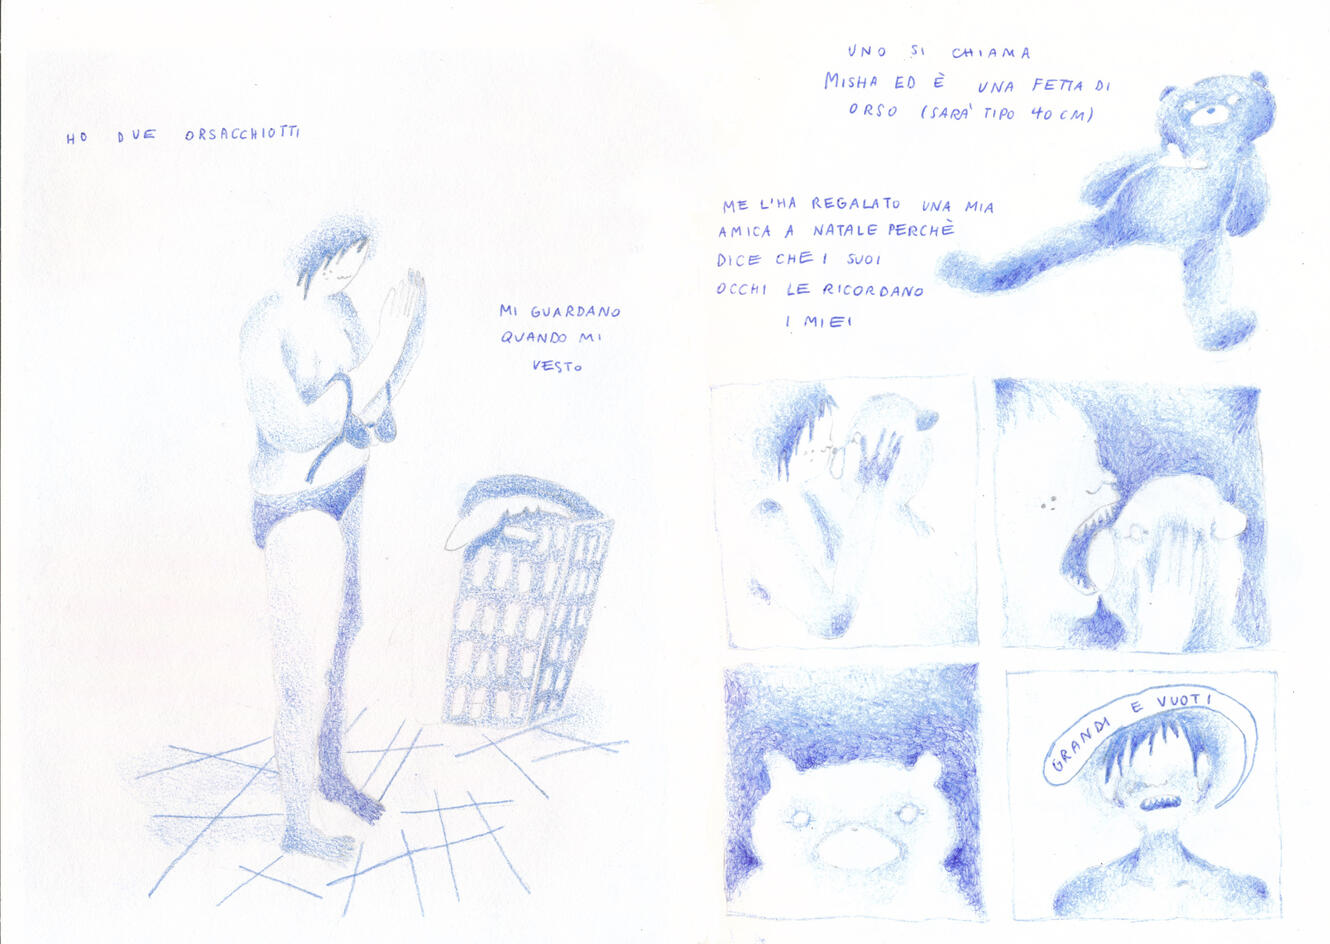 HO DUE ORSACCHIOTTI
MI GUARDANO
QUANDO MI
VESTO
UNO SI CHIAMA
MISHA ED È UNA FETTA DI
ORSO (SARA' TIPO 40 CM)
ME L'HA REGALATO UNA MIA
AMICA A NATALE PERCHÈ
DICE CHE I SUOI
OCCHI LE RICORDANO
I MIEI
GRANDI E VUOTI